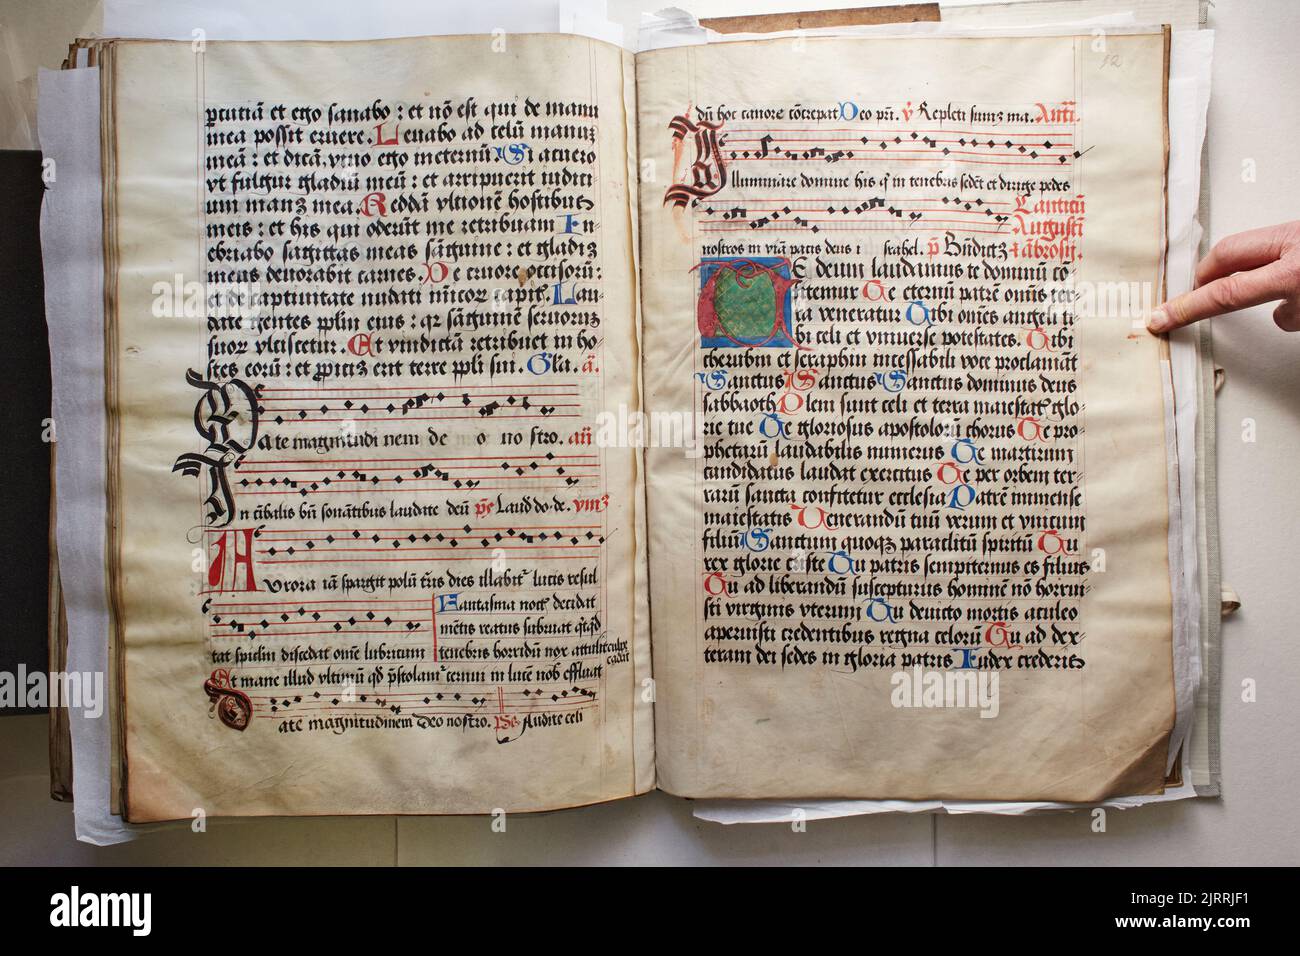 ꝑcutiā et ego sanabo : et nō est qui de manu
mea possit eruere. Leuabo ad celū manuz
meā : et dicā. viuo ego ī eternū Si acuero
vt fulgur gladiū meū : et arripuerit iudici
um manz mea. Reddā vltionē hostibus
meis : et his qui oderūt me retribuam In-
ebriabo sagittas meas sāguine : et gladiz
meus deuorabit carnes. De cruore occisorū :
et de captiuitate nudati inīcor capit. Lau-
date gentes pplm eius : qr sāguinē seruorum
suor vlciscetur. Et vindictā retribuet in ho-
stes eorū : et ꝓpitiz erit terre ppli sui. Glā. a.
Date magnitudinem deo nostro. añ
In cībalis bñ sonātibus laudate deū ps Laud do. de. ymz
Aurora iā spargit polū tris dies illabitr lucis resul
tat spiclm discedat omē lubricum
Fantasma noct decidat
mētis reatus subruat qcqd
tenebris horridū nox attulit culpe
cadat
Et mane illud vltimū qd pstolamr cernui in lucē nob effluat
Date magnitudinem Deo nostro. Ps Audite celi
52
dū hoc canore cōcrepat Deo pri. v Repleti sumz ma. Anti.
Illuminare domine his q in tenebris sedēt et dirige pedes
Canticū
Augusti
nostros in viā pacis deus israhel. p Bñdictz & ābrosij.
Te deum laudamus te dominū co-
fitemur Te eternū patrē omīs ter-
ra veneratur Tibi omēs angeli ti-
bi celi et vniuerse potestates. Tibi
cherubin et seraphin incessabili voce proclamāt
Sanctus Sanctus Sanctus dominus deus
sabbaoth Pleni sunt celi et terra maiestat glo-
rie tue Te gloriosus apostolorū chorus Te pro-
phetarū laudabilis numerus Te martirum
candidatus laudat exercitus Te per orbem ter-
rarū sancta confitetur ecclesia Patrē immense
maiestatis Venerandū tuū verum et vnicum
filiū Sanctum quoqz paraclitū spiritū Tu
rex glorie criste Tu patris sempiternus es filius
Tu ad liberandū suscepturus hominē nō horrui-
sti virginis vterum Tu deuicto mortis aculeo
aperuisti credentibus regna celorū Tu ad dex-
teram dei sedes in gloria patris Iudex crederis
alamy
Image ID: 2JRRJF1
www.alamy.com